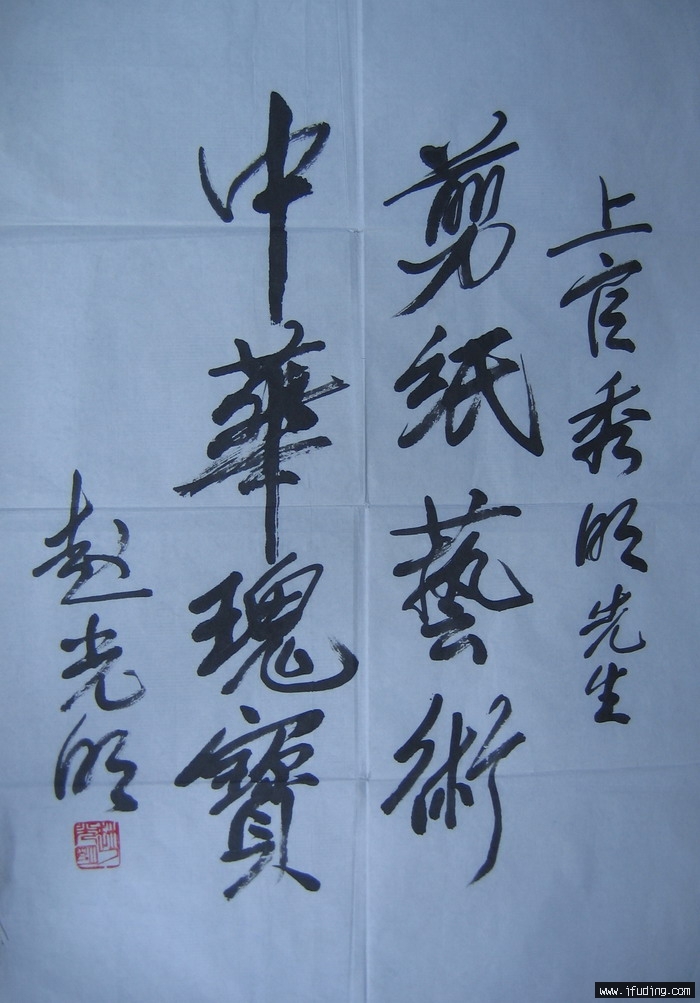 上官秀明先生
剪紙藝術
中華瑰寶
赵光明
www.ifuding.com